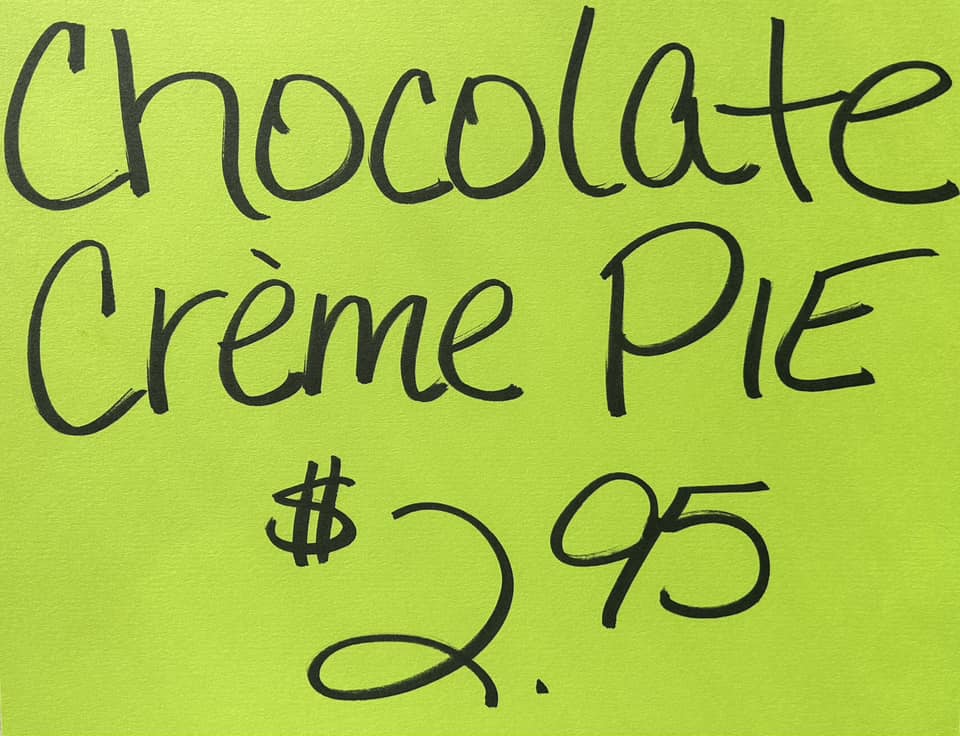 Chocolate
Crème PIE
$2.95